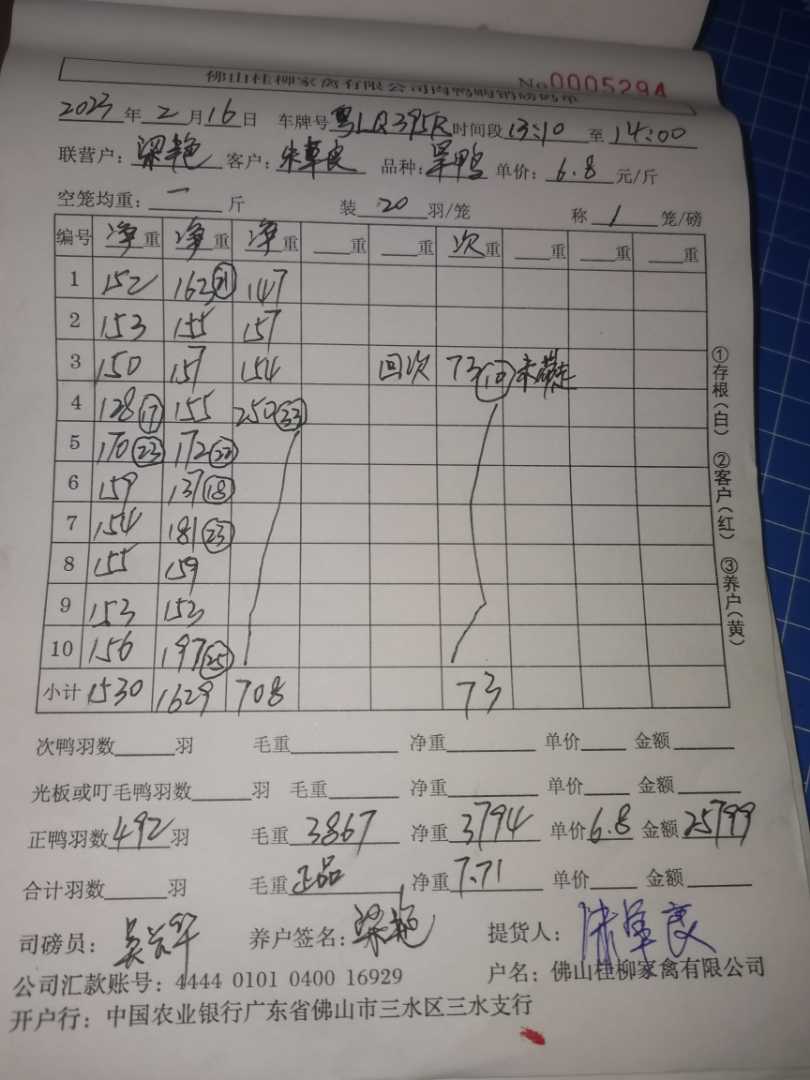 佛山桂柳家禽有限公司肉鸭购销磅码单 No 0005294
2023年2月16日 车牌号粤LQ395R时间段13:10至14:00
联营户:梁艳 客户:朱草良 品种:旱鸭 单价:6.8元/斤
空笼均重:一斤 装20羽/笼 称1笼/磅
编号 净重 净重 净重 重 重 次重 重 重 重
1 152 162(21) 147
2 153 155 157
3 150 157 154 回次 73(10)未带走
4 128(17) 155 250(33)
5 170(23) 172(22)
6 159 137(18)
7 154 181(23)
8 155 159
9 153 153
10 156 197(25)
小计 1530 1629 708 73
①存根(白) ②客户(红) ③养户(黄)
次鸭羽数 羽 毛重 净重 单价 金额
光板或叮毛鸭羽数 羽 毛重 净重 单价 金额
正鸭羽数492羽 毛重3867 净重3794 单价6.8 金额25799
合计羽数 羽 毛重正品 净重7.71 单价 金额
司磅员: 养户签名:梁艳 提货人:
公司汇款账号:4444 0101 0400 16929 户名:佛山桂柳家禽有限公司
开户行:中国农业银行广东省佛山市三水区三水支行